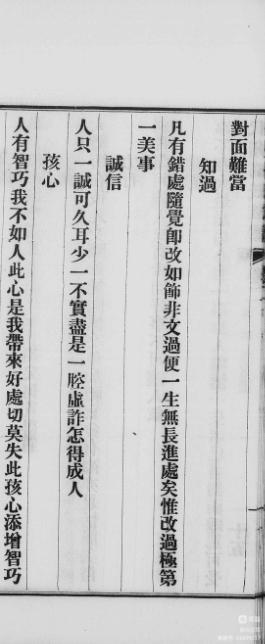 對面難當
知過
凡有錯處隨覺卽改如飾非文過便一生無長進處矣惟改過極第
一美事
誠信
人只一誠可久耳少一不實盡是一腔虛詐怎得成人
孩心
人有智巧我不如人此心是我帶來好處切莫失此孩心添增智巧